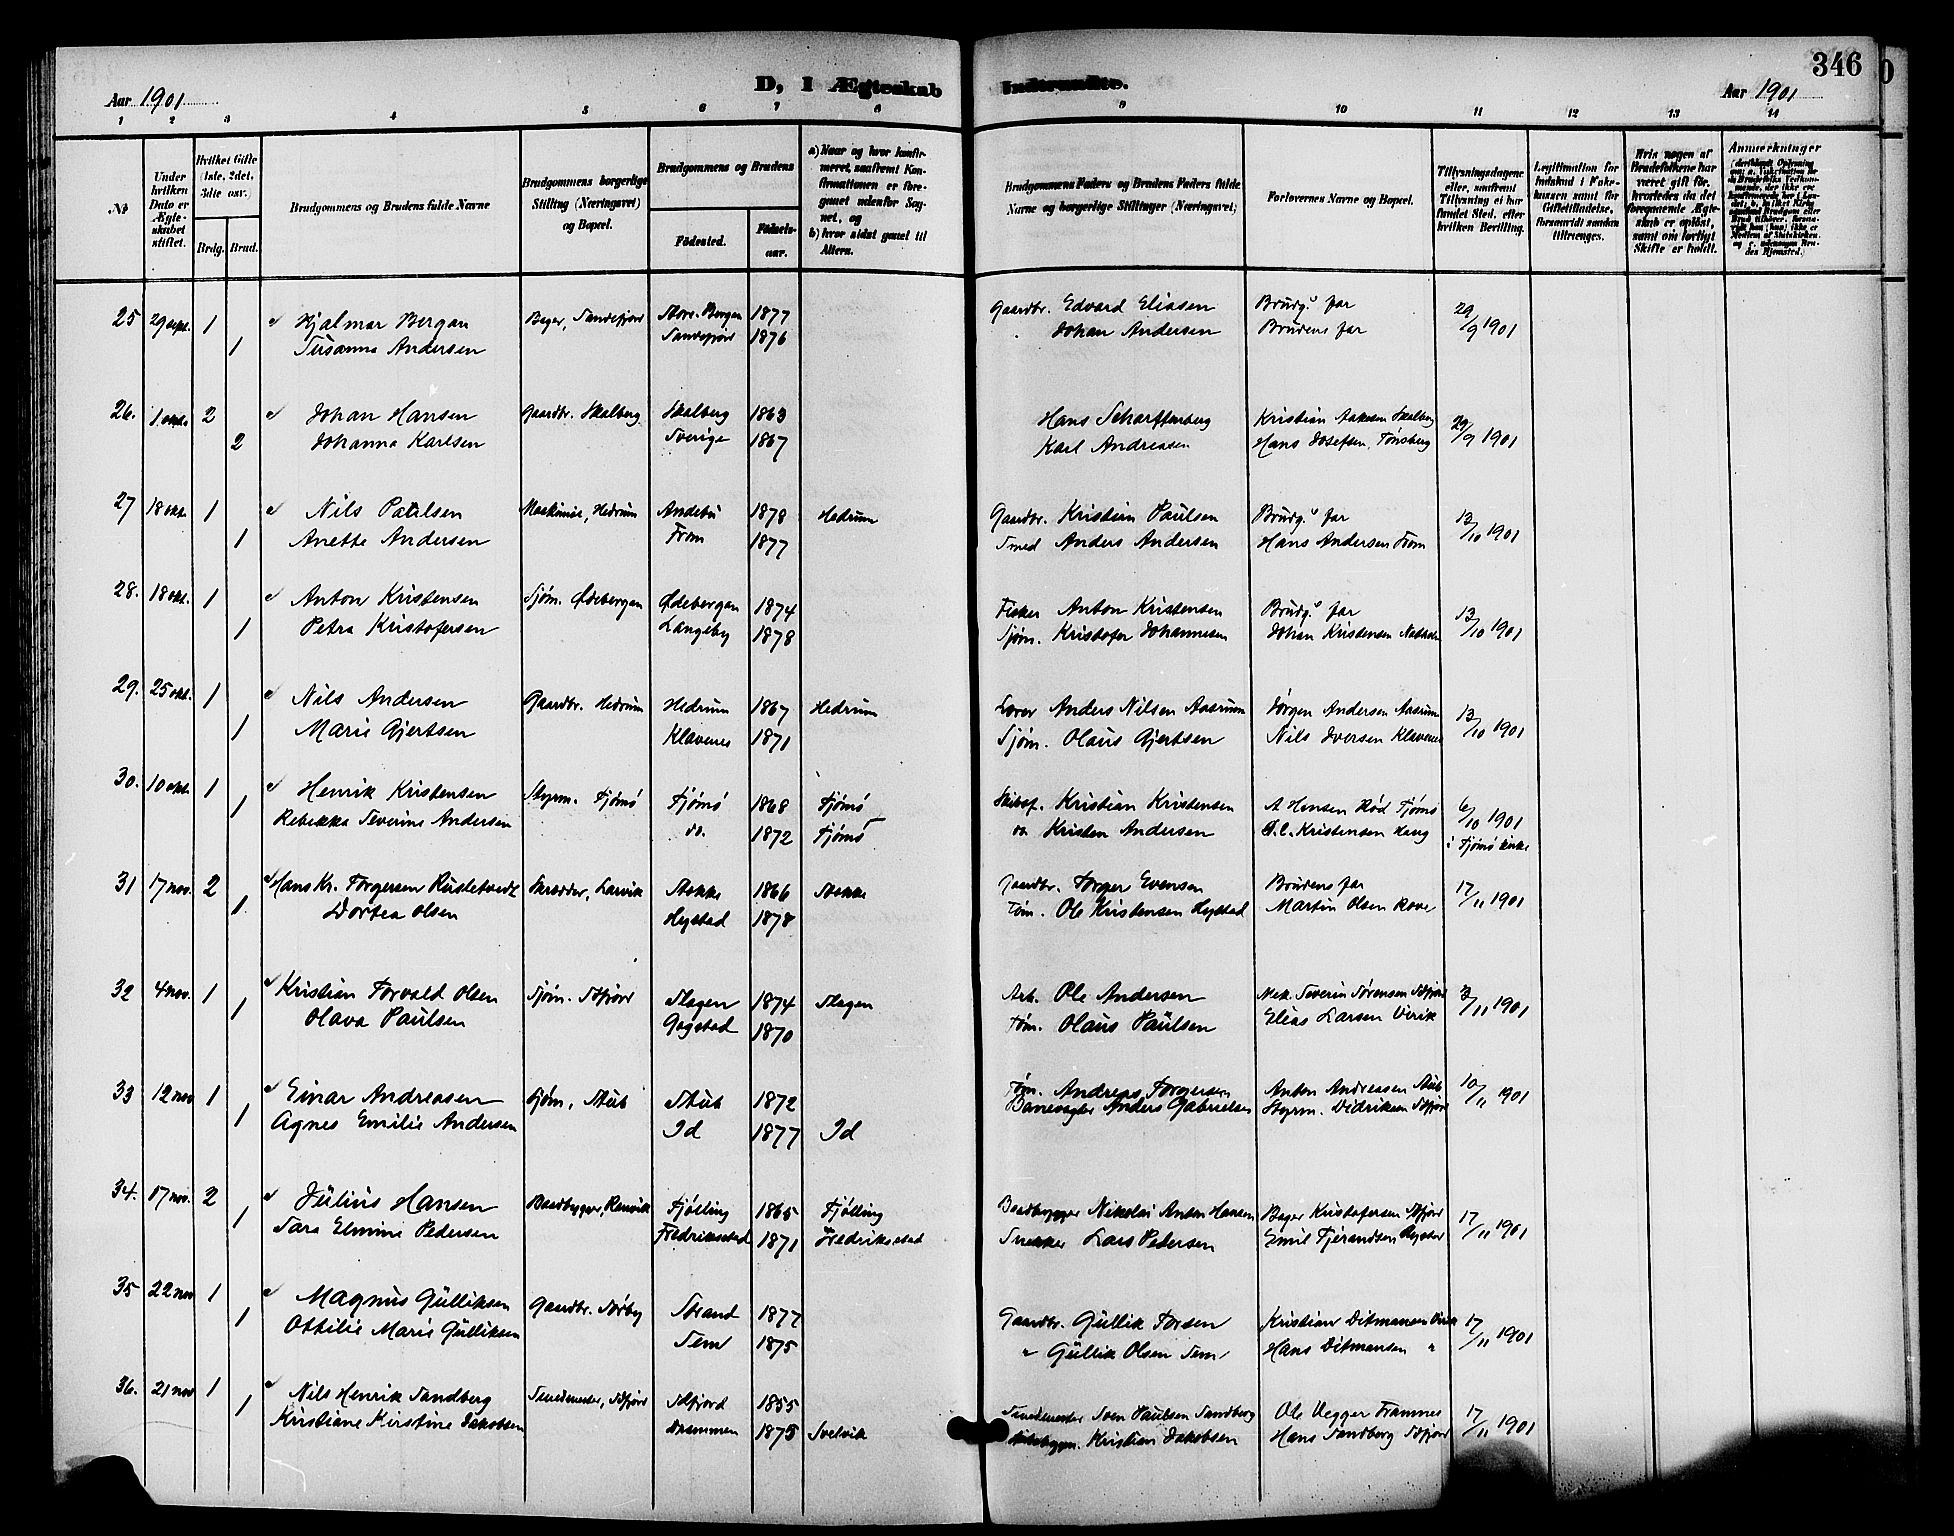 346
Aar 1901
D, I Ægteskab Indtraadte.
Aar 1901
1 2 3 4 5 6 7 8 9 10 11 12 13 14
No
Under hvilken Dato er Ægteskabet stiftet.
Hvilket Gifte (1ste, 2det, 3die osv.)
Brdg. Brud.
Brudgommens og Brudens fulde Navne
Brudgommens borgerlige Stilling (Næringsvei) og Bopæl.
Brudgommens og Brudens
Fødested. Fødselsaar.
a) Naar og hvor konfirmeret, saafremt Konfirmationen er foregaaet udenfor Sognet, og
b) hvor sidst gaaet til Alters.
Brudgommens Faders og Brudens Faders fulde Navne og borgerlige Stillinger (Næringsvei)
Forlovernes Navne og Bopæl.
Tillysningsdagene eller, saafremt Tillysning ei har fundet Sted, efter hvilken Bevilling.
Legitimation for Indskud i Enkekassen samt for Giftetilladelse, forsaavidt saadan tiltrænges.
Hvis nogen af Brudefolkene har været gift før, hvorledes da det foregaaende Ægteskab er opløst, samt om lovligt Skifte er holdt.
Anmærkninger
25 29 sept. 1 Hjalmar Bergan Bager, Sandefjord Store Bergan 1877 Gaardbr. Edvard Eliasen Brudg.s far 29/9 1901
1 Susanna Andersen Sandefjord 1876 Johan Andersen Brudens far
26. 1 okt. 2 Johan Hansen Gaardbr. Skalberg Skalberg 1863 Hans Scharffenberg Kristian Aakesen Skalberg 29/9 1901
2 Johanna Karlsen Sverige 1867 Karl Andreasen Hans Josefsen, Tønsberg
27 18 okt. 1 Nils Paulsen Maskinist, Hedrum Andebu 1878 Hedrum Gaardbr. Kristian Paulsen Brudg.s far 13/10 1901
1 Anette Andersen Fram 1877 Smed Anders Andersen Hans Andersen Fram
28. 18 okt. 1 Anton Kristensen Sjøm. Ødebergan Ødebergan 1874 Fisker Anton Kristensen Brudg.s far 13/10 1901
1 Petra Kristofersen Langeby 1878 Sjøm. Kristofer Johannesen Johan Kristensen
29. 25 okt. 1 Nils Andersen Gaardbr. Hedrum Hedrum 1867 Hedrum Lærer Anders Nilsen Aasrum Jørgen Andersen Aasrum 13/10 1901
1 Marie Gjertsen Klavenes 1871 Sjøm. Olaus Gjertsen Nils Iversen Klavenes
30. 10 okt. 1 Henrik Kristensen Styrm. Tjømø Tjømø 1868 Tjømø Skibsf. Kristian Kristensen A. Hansen Rød Tjømø 6/10 1901
1 Rebekka Severine Andersen do. 1872 Tjømø do Kristen Andersen Kristensen Haug i Tjømø kirke
31 17 nov. 2 Hans Kr. Torgersen Skrædder, Larvik Stokke 1866 Stokke Gaardbr. Torger Evensen Brudens far 17/11 1901
1 Dortea Olsen Hystad 1878 Tøm. Ole Kristensen Hystad Martin Olsen Rove
32 4 nov. 1 Kristian Torvald Olsen Sjøm. Sdfjord Slagen 1874 Slagen Arb. Ole Andersen Mek. Severin Sørensen Sdfjord 3/11 1901
1 Olava Paulsen Gogstad 1870 Tøm. Olaus Paulsen Elias Larsen Virik
33 12 nov 1 Einar Andreasen Sjøm, Stub Stub 1872 Tøm. Andreas Torgersen Anton Andreasen Stub 10/11 1901
1 Agnes Emilie Andersen Id 1877 Id Banevagter Anders Gabrielsen Styrm. Didriksen Sdfjord
34. 17 nov. 2 Julius Hansen Baadbygger, Ranvik Tjølling 1865 Tjølling Baadbygger Nikolai Anton Hansen Bager Kristofersen Sdfjord 17/11 1901
1 Sara Elmine Pedersen Fredriksstad 1871 Fredriksstad Snekker Lars Pedersen Emil Tjerandsen
35 22 nov 1 Magnus Gulliksen Gaardbr. Sørby Strand 1877 Gaardbr. Gullik Torsen Kristian Ditmansen Virik 17/11 1901
1 Ottilie Marie Gulliksen Sem 1875 " Gullik Olsen Sem Hans Ditmansen "
36. 21 nov 1 Nils Henrik Sandberg Smedmester, Sdfjord Sdfjord 1855 Smedmester Sven Paulsen Sandberg Ole Vegger Framnes 17/11 1901
1 Kristiane Kirstine Jakobsen Drammen 1875 Svelvik Skibsbyggm. Kristian Jakobsen Hans Sandberg Sdfjord